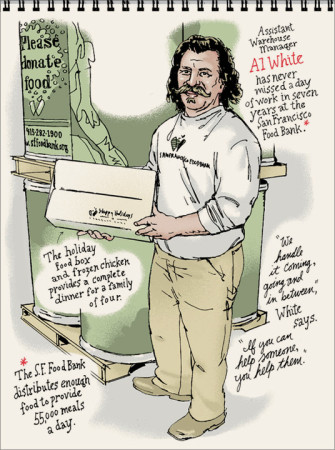 Please
donate
food
415-282-1900
w.sffoodbank.org
Assistant
Warehouse
Manager
Al White
has never
missed a day
of work in seven
years at the
San Francisco
Food Bank.*
Happy Holidays!
The holiday
food box
and frozen chicken
provides a complete
dinner for a family
of four.
"We
handle
it coming,
going and
in between,"
White
says.
"If you can
help someone,
you help them."
*
The S.F. Food Bank
distributes enough
food to provide
55,000 meals
a day.